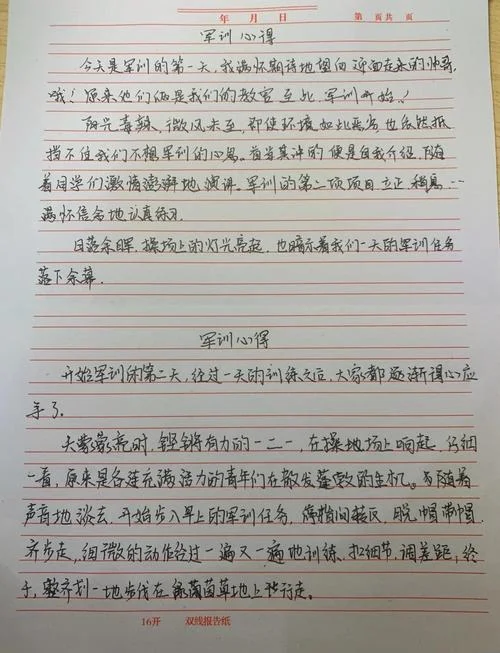 年 月 日 第 页共 页
军训心得
今天是军训的第一天,我满怀期待地望向迎面走来的帅哥,
哦!原来他们俩是我们的教官至此,军训开始!
阳光毒辣、微风未至,即使环境如此恶劣也依然抵
挡不住我们不想军训的心思。首当其冲的便是自我介绍,随
着同学们激情澎湃地演讲。军训的第二项项目立正、稍息…
满怀信念地认真练习.
日落余晖,操场上的灯光亮起,也暗示着我们一天的军训任务
落下余幕.
军训心得
开始军训的第二天,经过一天的训练之后,大家都逐渐得心应
手了。
天蒙蒙亮时,铿锵有力的一二一,在操地场上响起,仔细
一看,原来是各连充满活力的青年们在散发蓬勃的生机。随着
声音地淡去,开始步入早上的军训任务,停止间转区,脱帽带帽
齐步走,细微的动作经过一遍又一遍地训练、扣细节,调差距,终
于,整齐划一地步伐在绿茵草地上行走。
16开 双线报告纸